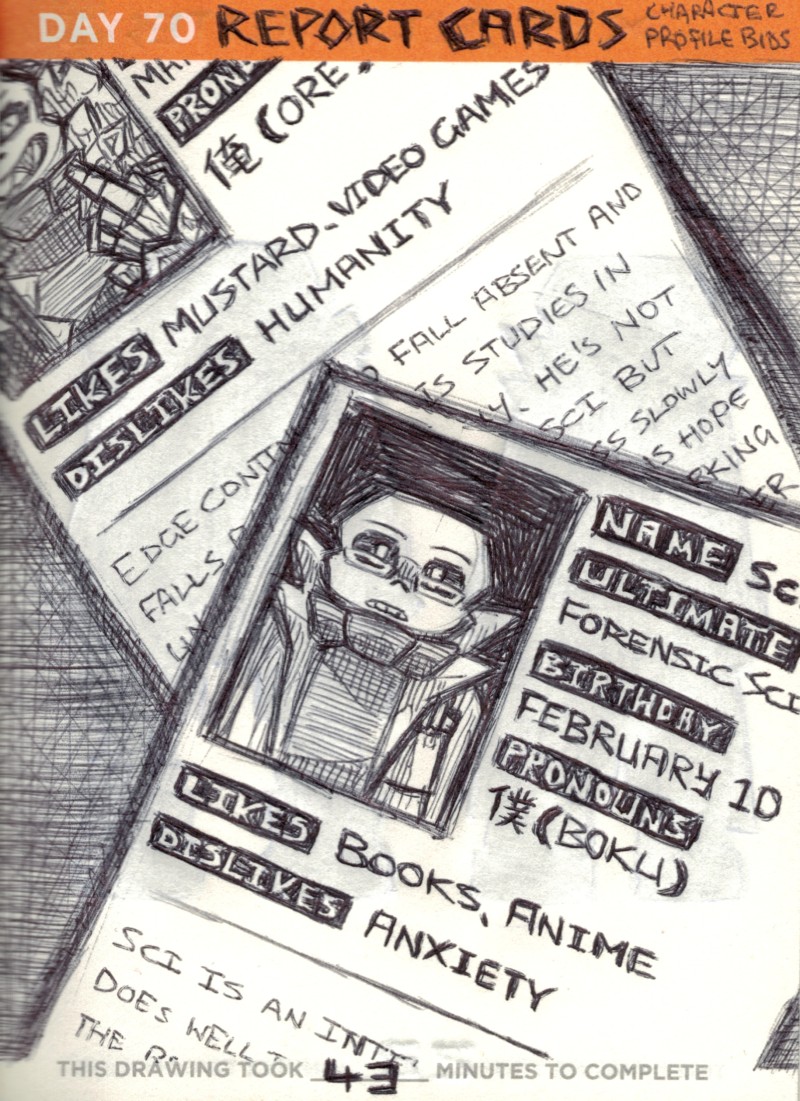 DAY 70 REPORT CARDS
CHARACTER
PROFILE BIDS
俺 (ORE
LIKES MUSTARD. VIDEO GAMES
DISLIKES HUMANITY
FALL ABSENT AND
STUDIES IN
HE'S NOT
SCI BUT
SLOWLY
HOPE
EDGE
FALLS
NAME
ULTIMATE
FORENSIC
BIRTHDAY
FEBRUARY 10
PRONOUNS
僕 (BOKU)
LIKES BOOKS, ANIME
DISLIKES ANXIETY
SCI IS AN
DOES WELL
THE
THIS DRAWING TOOK 43 MINUTES TO COMPLETE